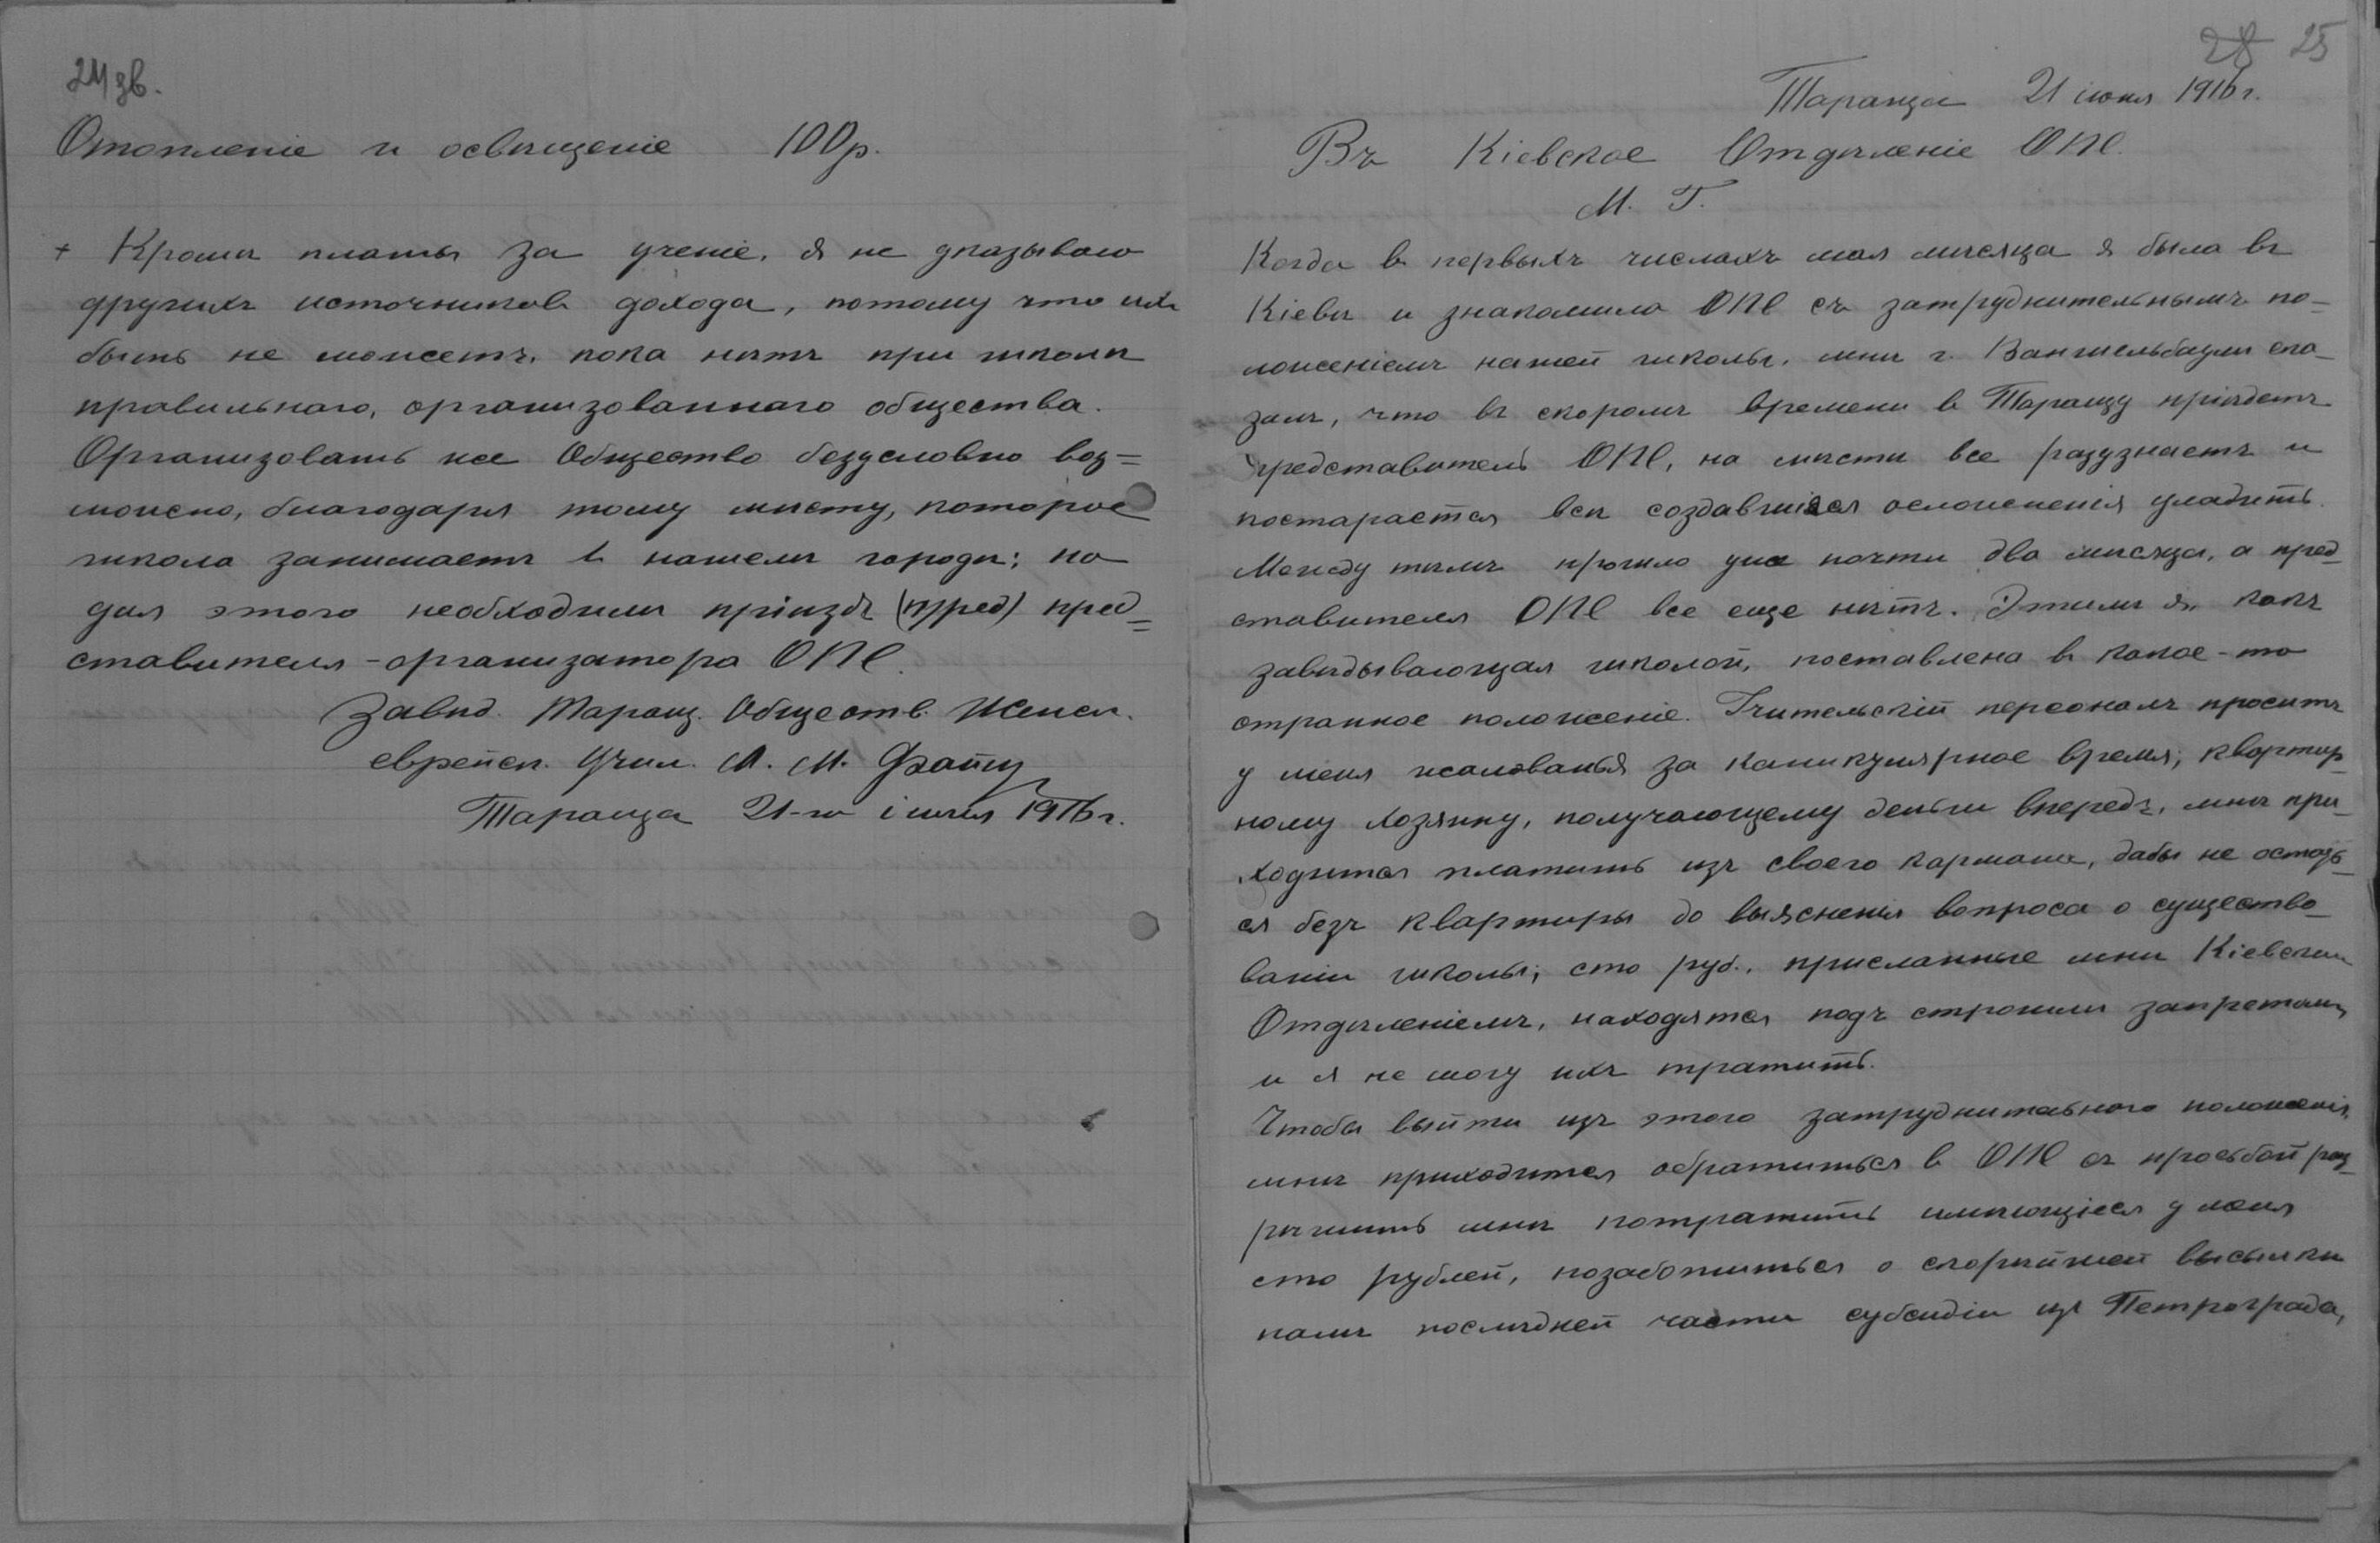 24 зв.
Отопленіе и освѣщеніе 100 р.
+ Кромѣ платы за ученіе, я не указываю
другихъ источников дохода, потому что ихъ
быть не можетъ, пока нѣтъ при школѣ
правильнаго, организованнаго общества.
Организовать же Общество безусловно воз=
можно, благодаря тому мѣсту, которое
школа занимаетъ в нашемъ городѣ; но
для этого необходимъ пріѣздъ (пред) пред=
ставителя-организатора ОПЕ.
Завѣд. Таращ. Обществ. Женск.
еврейск. Учил. М. М. Файтъ
Тараща 21-го іюня 1916 г.
28 25
Тараща 21 іюня 1916 г.
Въ Кіевское Отдѣленіе ОПЕ.
М. Г.
Когда в первыхъ числахъ мая мѣсяца я была въ
Кіевѣ и знакомила ОПЕ съ затруднительнымъ по-
ложеніемъ нашей школы, мнѣ г. Ваншельбаумъ ска-
залъ, что въ скоромъ времени в Таращу пріѣдетъ
представитель ОПЕ, на мѣстѣ все разузнаетъ и
постарается всѣ создавшіяся осложненія уладить.
Между тѣмъ прошло уже почти два мѣсяца, а пред-
ставителя ОПЕ все еще нѣтъ. Этимъ я, какъ
завѣдывающая школой, поставлена в какое-то
странное положеніе. Учительскій персоналъ проситъ
у меня жалованья за каникулярное время; квартир-
ному хозяину, получающему деньги впередъ, мнѣ при-
ходится платить изъ своего кармана, дабы не остать-
ся безъ квартиры до выясненія вопроса о существо-
ваніи школы; сто руб., присланные мнѣ Кіевским
Отдѣленіемъ, находятся подъ строгимъ запретомъ,
и я не могу ихъ тратить.
Чтобы выйти изъ этого затруднительнаго положенія,
мнѣ приходится обратиться в ОПЕ съ просьбой раз-
рѣшить мнѣ потратить имѣющіеся у меня
сто рублей, позаботиться о скорѣйшей высылкѣ
намъ послѣдней части субсидіи изъ Петрограда,